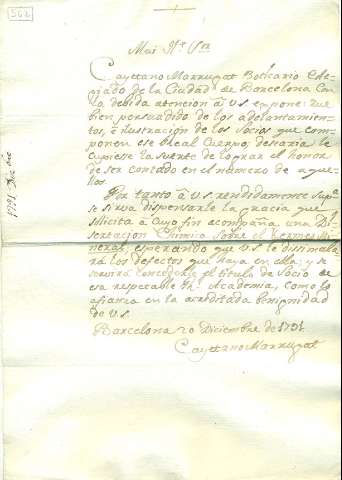 562
Mui Il.e S.or
Cayettano Marrugat Boticario Cole-
jiado de la Ciudad de Barcelona Con
la debida atencion a V.S. expone: Que
bien persuadido de los adelantamien-
tos, è ilustracion de los Socios que com-
ponen ese Real Cuerpo, desearia le
cupiesse la suerte de lograr el honor
de ser contado en el numero de aque-
llos.
Por tanto â V.S. rendidamente Sup.ca
se sirva dispensarle la gracia que
solicita â Cuyo fin acompaña una Di-
sertacion Chimica Sobre el Kermes Mi-
neral, esperando que V.S. le dissimula-
rá los defectos que haya en ella; y se
servirá concederle el titulo de Socio de
esa respetable Academia, como lo
afianza en la acreditada benignidad
de V.S.
Barcelona 20 Diciembre de 1791
Cayettano Marrugat
1791 Dic.bre